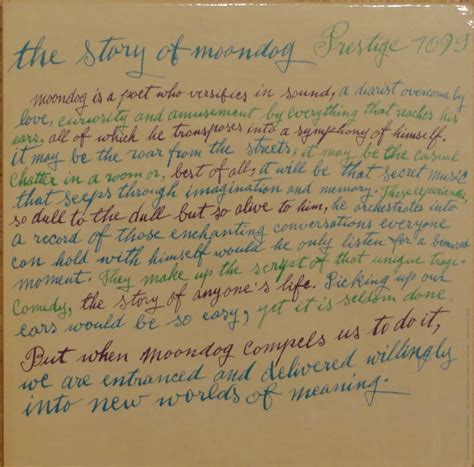 the story of moondog Prestige 7099
Moondog is a poet who versifies in sound, a diarist overcome by
love, curiosity and amusement by everything that reaches his
ears, all of which he transposes into a symphony of himself.
it may be the roar from the streets; it may be the casual
chatter in a room or, best of all, it will be that secret music
that seeps through imagination and memory. These experiences,
so dull to the dull but so alive to him, he orchestrates into
a record of those enchanting conversations everyone
can hold with himself would he only listen for a bemused
moment. They make up the script of that unique tragi-
comedy, the story of anyone's life. Picking up our
ears would be so easy, yet it is seldom done.
But when Moondog compels us to do it,
we are entranced and delivered willingly
into new worlds of meaning.